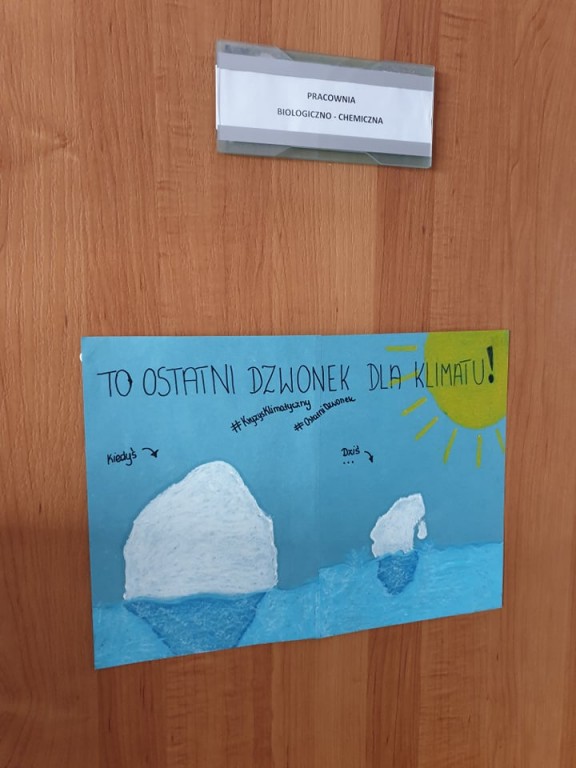 PRACOWNIA
BIOLOGICZNO - CHEMICZNA
TO OSTATNI DZWONEK DLA KLIMATU!
#KryzysKlimatyczny
#OstatniDzwonek
Kiedyś
Dziś
...